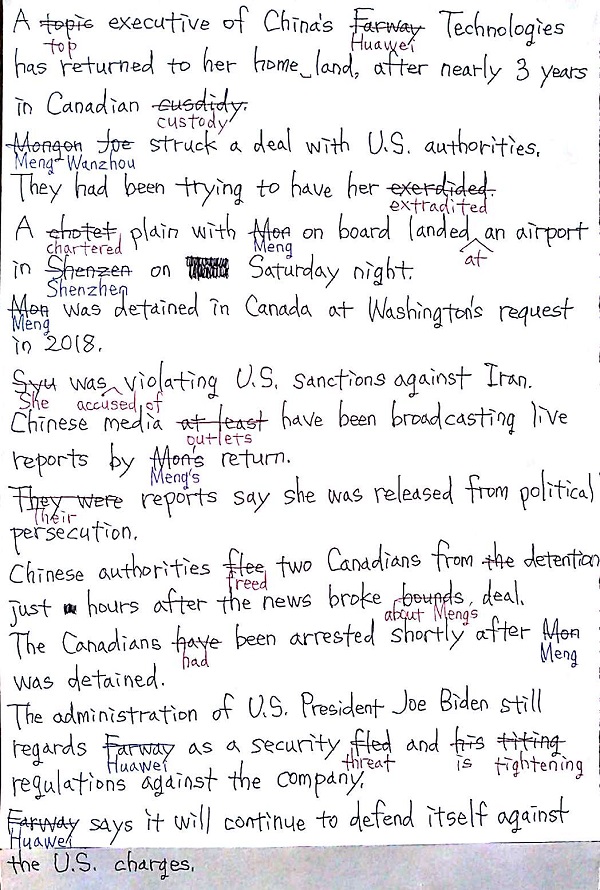 A topic executive of China's Farway Technologies
top Huawei
has returned to her home land, after nearly 3 years
in Canadian cusdidy.
custody
Mongon Joe struck a deal with U.S. authorities.
Meng Wanzhou
They had been trying to have her exerdided.
extradited
A chotet plain with Mon on board landed an airport
chartered Meng at
in Shenzen on Saturday night.
Shenzhen
Mon was detained in Canada at Washington's request
Meng
in 2018.
Syu was violating U.S. sanctions against Iran.
She accused of
Chinese media at least have been broadcasting live
outlets
reports by Mon's return.
Meng's
They were reports say she was released from political
Their
persecution.
Chinese authorities flee two Canadians from the detention
freed
just hours after the news broke bounds, deal.
about Mengs
The Canadians have been arrested shortly after Mon
had Meng
was detained.
The administration of U.S. President Joe Biden still
regards Farway as a security fled and his titing
Huawei threat is tightening
regulations against the company.
Farway says it will continue to defend itself against
Huawei
the U.S. charges.